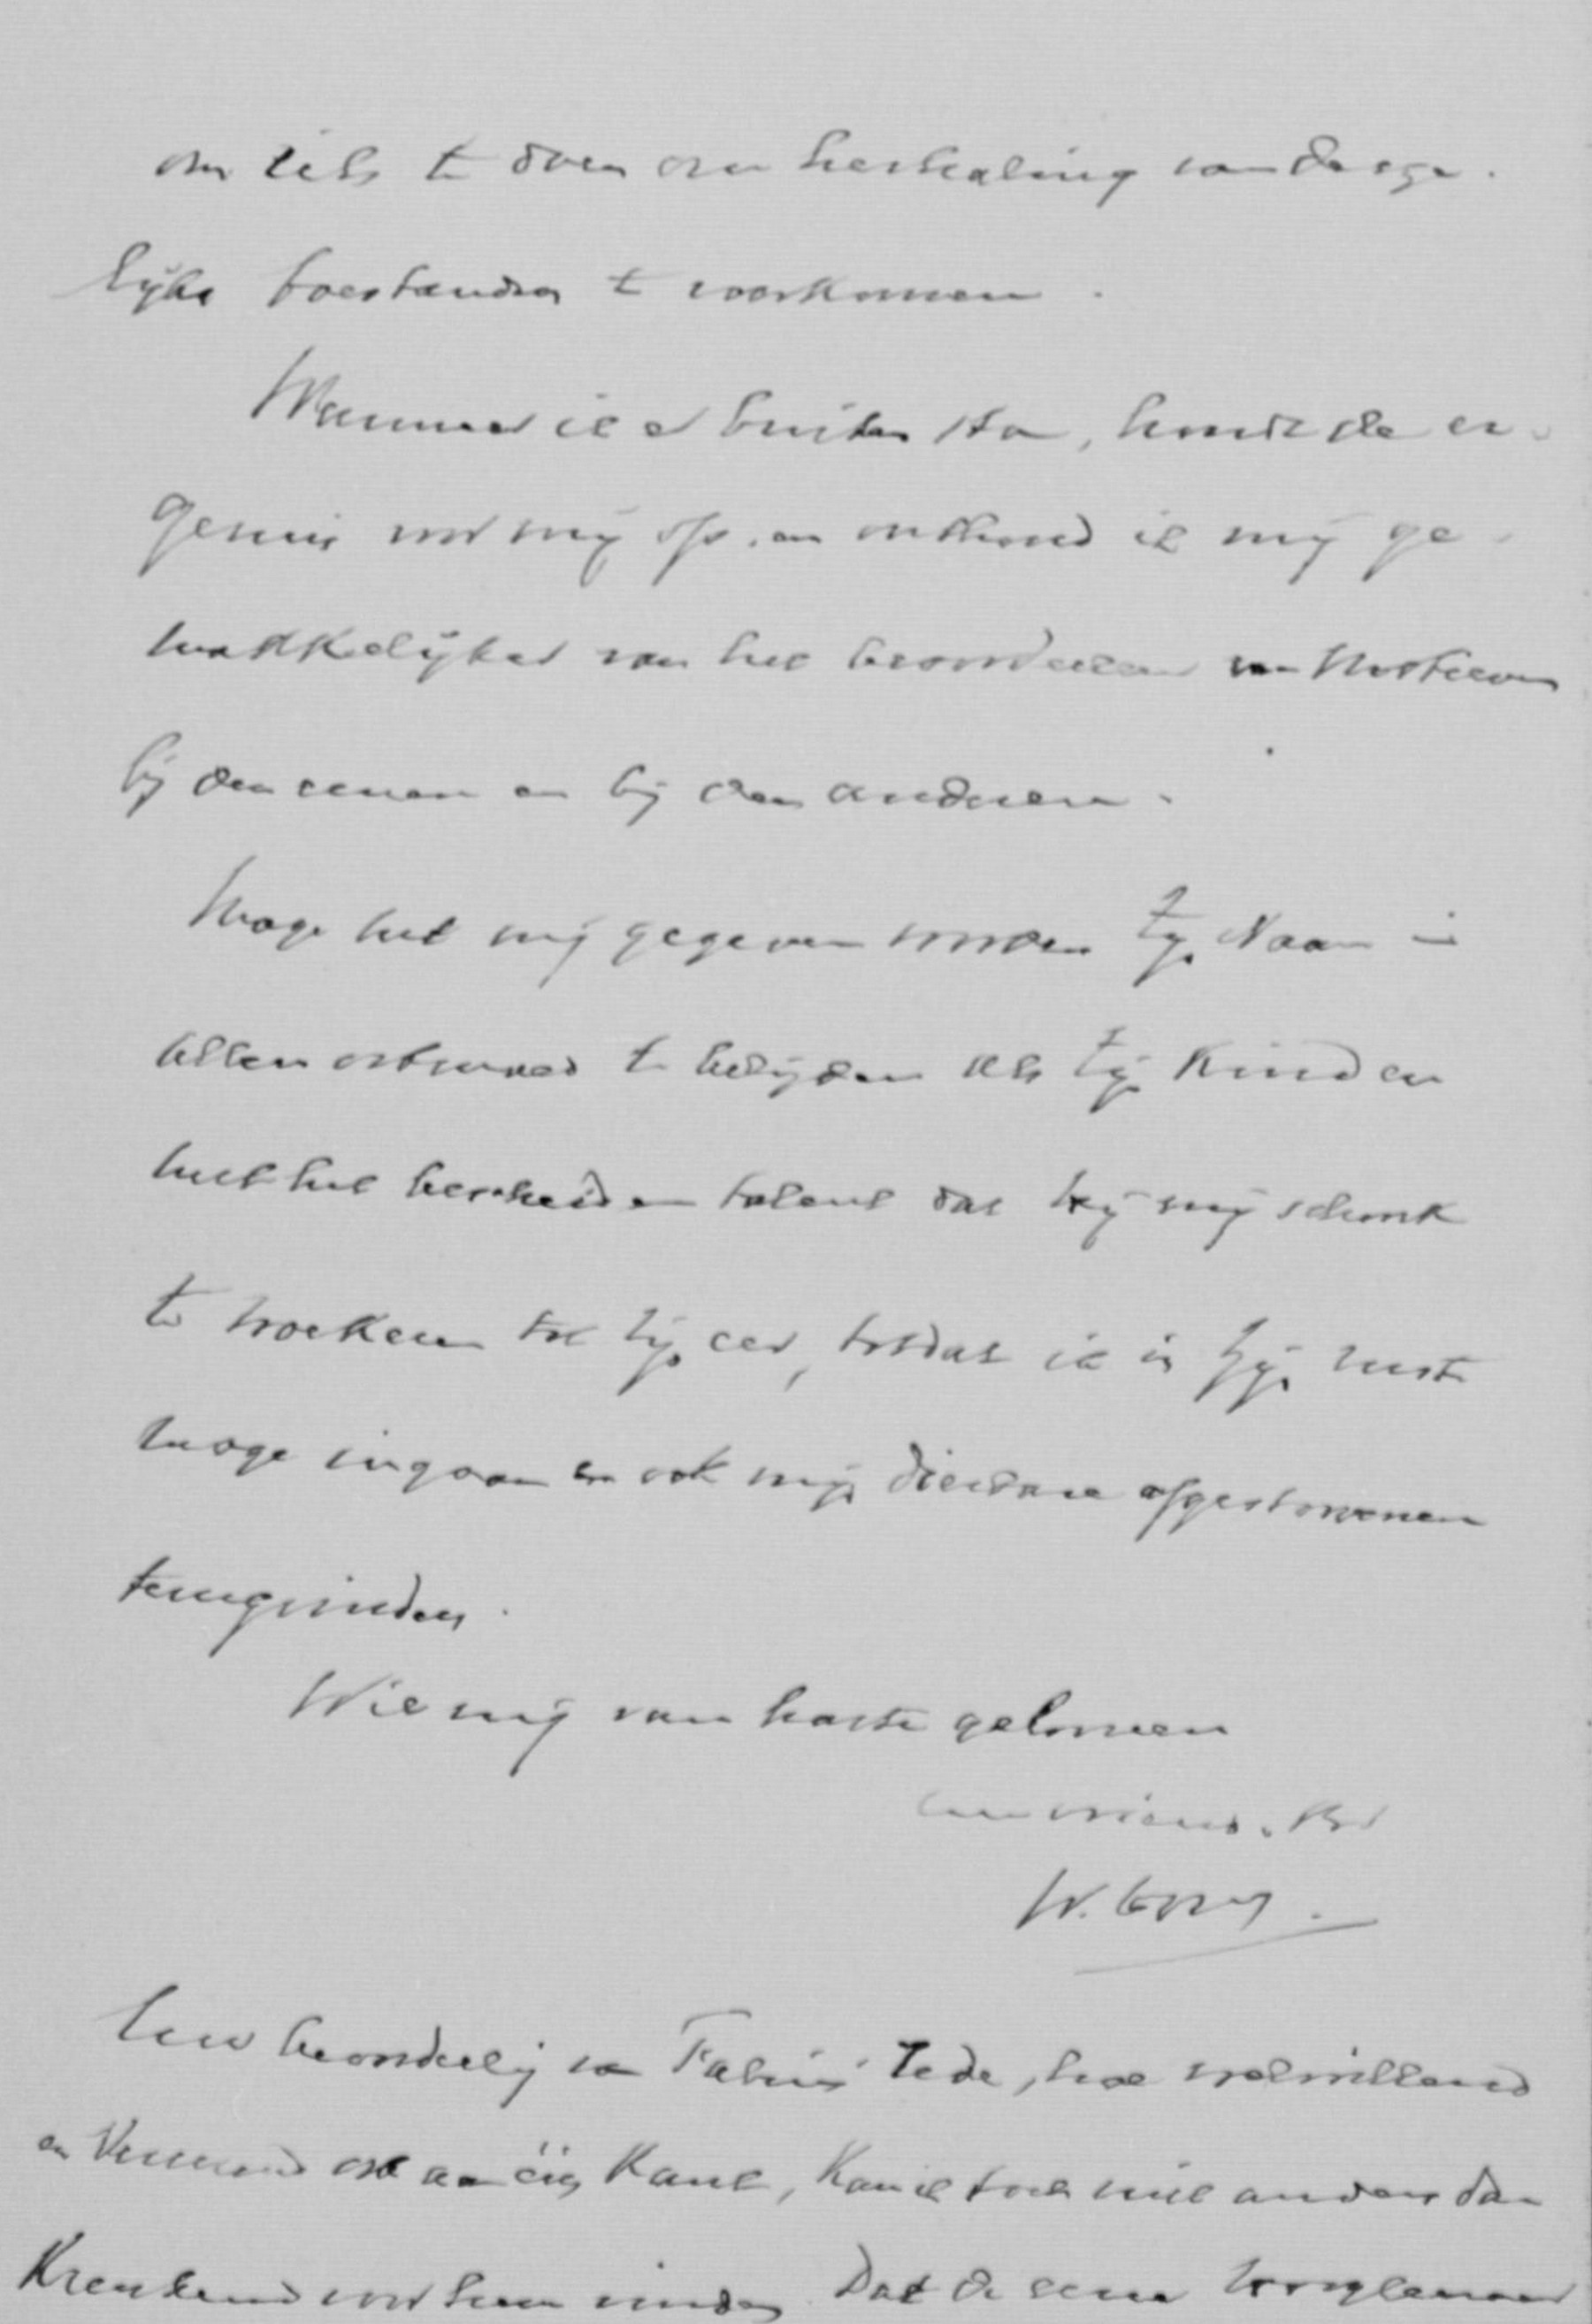 om iets te doen om herhaling van derge-
lijke toestanden te voorkomen.
Wanneer ik er buiten sta, houdt de er-
genis voor mij op, en onthoud ik mij ge-
makkelijker van het beoordeelen van motieven
bij den eenen en bij den anderen.
Moge het mij gegeven worden Zijn Naam in
allen ootmoed te belijden als Zijn kind en
met het bescheiden talent dat Hij mij schonk
te woekeren tot Zijn eer, totdat ik in Zijn rust
moge ingaan en ook mijn dierbare afgestorvenen
terugvinden.
Wil mij van harte gelooven
Uw vriend. Br
W.
Uw beoordeeling van Fabius' rede, hoe welwillend
en ook aan één kant, kan ik toch niet anders dan
krenkend voor hem vinden. Dat de eene hoogleeraar